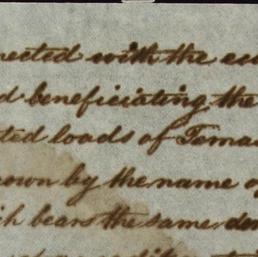 nected with the
d beneficiating the
ted loads of Temas
nown by the name of
ich bears the same den